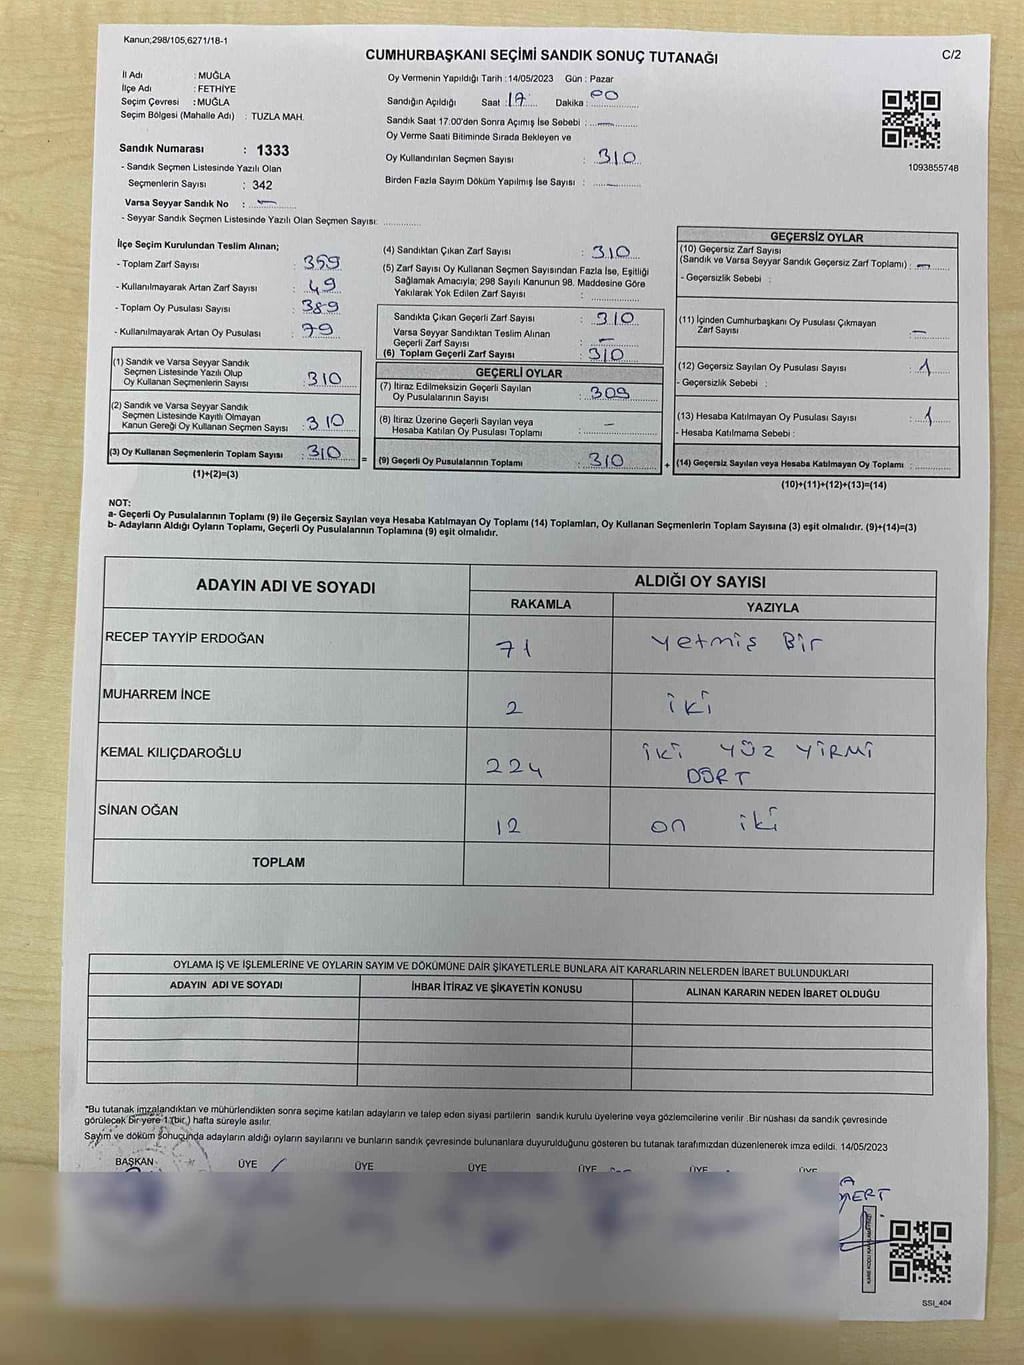 Kanun;298/105,6271/18-1
CUMHURBAŞKANI SEÇİMİ SANDIK SONUÇ TUTANAĞI
C/2
İl Adı : MUĞLA
İlçe Adı : FETHİYE
Seçim Çevresi : MUĞLA
Seçim Bölgesi (Mahalle Adı) : TUZLA MAH.
Sandık Numarası : 1333
- Sandık Seçmen Listesinde Yazılı Olan
Seçmenlerin Sayısı : 342
Varsa Seyyar Sandık No : -
- Seyyar Sandık Seçmen Listesinde Yazılı Olan Seçmen Sayısı: ..............
Oy Vermenin Yapıldığı Tarih : 14/05/2023 Gün : Pazar
Sandığın Açıldığı Saat : 17 Dakika : 00
Sandık Saat 17.00'den Sonra Açımış İse Sebebi : -
Oy Verme Saati Bitiminde Sırada Bekleyen ve
Oy Kullandırılan Seçmen Sayısı : 310
Birden Fazla Sayım Döküm Yapılmış İse Sayısı : -
1093855748
İlçe Seçim Kurulundan Teslim Alınan;
- Toplam Zarf Sayısı : 359
- Kullanılmayarak Artan Zarf Sayısı : 49
- Toplam Oy Pusulası Sayısı : 389
- Kullanılmayarak Artan Oy Pusulası : 79
(1) Sandık ve Varsa Seyyar Sandık
Seçmen Listesinde Yazılı Olup
Oy Kullanan Seçmenlerin Sayısı : 310
(2) Sandık ve Varsa Seyyar Sandık
Seçmen Listesinde Kayıtlı Olmayan
Kanun Gereği Oy Kullanan Seçmen Sayısı : 310
(3) Oy Kullanan Seçmenlerin Toplam Sayısı : 310
(1)+(2)=(3)
(4) Sandıktan Çıkan Zarf Sayısı : 310
(5) Zarf Sayısı Oy Kullanan Seçmen Sayısından Fazla İse, Eşitliği
Sağlamak Amacıyla; 298 Sayılı Kanunun 98. Maddesine Göre
Yakılarak Yok Edilen Zarf Sayısı : ..............
Sandıkta Çıkan Geçerli Zarf Sayısı : 310
Varsa Seyyar Sandıktan Teslim Alınan
Geçerli Zarf Sayısı : -
(6) Toplam Geçerli Zarf Sayısı : 310
GEÇERLİ OYLAR
(7) İtiraz Edilmeksizin Geçerli Sayılan
Oy Pusulalarının Sayısı : 309
(8) İtiraz Üzerine Geçerli Sayılan veya
Hesaba Katılan Oy Pusulası Toplamı : -
= (9) Geçerli Oy Pusulalarının Toplamı : 310
GEÇERSİZ OYLAR
(10) Geçersiz Zarf Sayısı
(Sandık ve Varsa Seyyar Sandık Geçersiz Zarf Toplamı) : -
- Geçersizlik Sebebi :
(11) İçinden Cumhurbaşkanı Oy Pusulası Çıkmayan
Zarf Sayısı : -
(12) Geçersiz Sayılan Oy Pusulası Sayısı : 1
- Geçersizlik Sebebi :
(13) Hesaba Katılmayan Oy Pusulası Sayısı : 1
- Hesaba Katılmama Sebebi :
+ (14) Geçersiz Sayılan veya Hesaba Katılmayan Oy Toplamı : ..............
(10)+(11)+(12)+(13)=(14)
NOT:
a- Geçerli Oy Pusulalarının Toplamı (9) ile Geçersiz Sayılan veya Hesaba Katılmayan Oy Toplamı (14) Toplamları, Oy Kullanan Seçmenlerin Toplam Sayısına (3) eşit olmalıdır. (9)+(14)=(3)
b- Adayların Aldığı Oyların Toplamı, Geçerli Oy Pusulalarının Toplamına (9) eşit olmalıdır.
ADAYIN ADI VE SOYADI
ALDIĞI OY SAYISI
RAKAMLA YAZIYLA
RECEP TAYYİP ERDOĞAN 71 Yetmiş Bir
MUHARREM İNCE 2 iki
KEMAL KILIÇDAROĞLU 224 iki YÜZ YİRMİ
DÖRT
SİNAN OĞAN 12 on iki
TOPLAM
OYLAMA İŞ VE İŞLEMLERİNE VE OYLARIN SAYIM VE DÖKÜMÜNE DAİR ŞİKAYETLERLE BUNLARA AİT KARARLARIN NELERDEN İBARET BULUNDUKLARI
ADAYIN ADI VE SOYADI İHBAR İTİRAZ VE ŞİKAYETİN KONUSU ALINAN KARARIN NEDEN İBARET OLDUĞU
*Bu tutanak imzalandıktan ve mühürlendikten sonra seçime katılan adayların ve talep eden siyasi partilerin sandık kurulu üyelerine veya gözlemcilerine verilir .Bir nüshası da sandık çevresinde
görülecek bir yere 1 (bir ) hafta süreyle asılır.
Sayım ve döküm sonucunda adayların aldığı oyların sayılarını ve bunların sandık çevresinde bulunanlara duyurulduğunu gösteren bu tutanak tarafımızdan düzenlenerek imza edildi. 14/05/2023
BAŞKAN ÜYE ÜYE ÜYE ÜYE ÜYE ÜYE
MERT
SSI_404